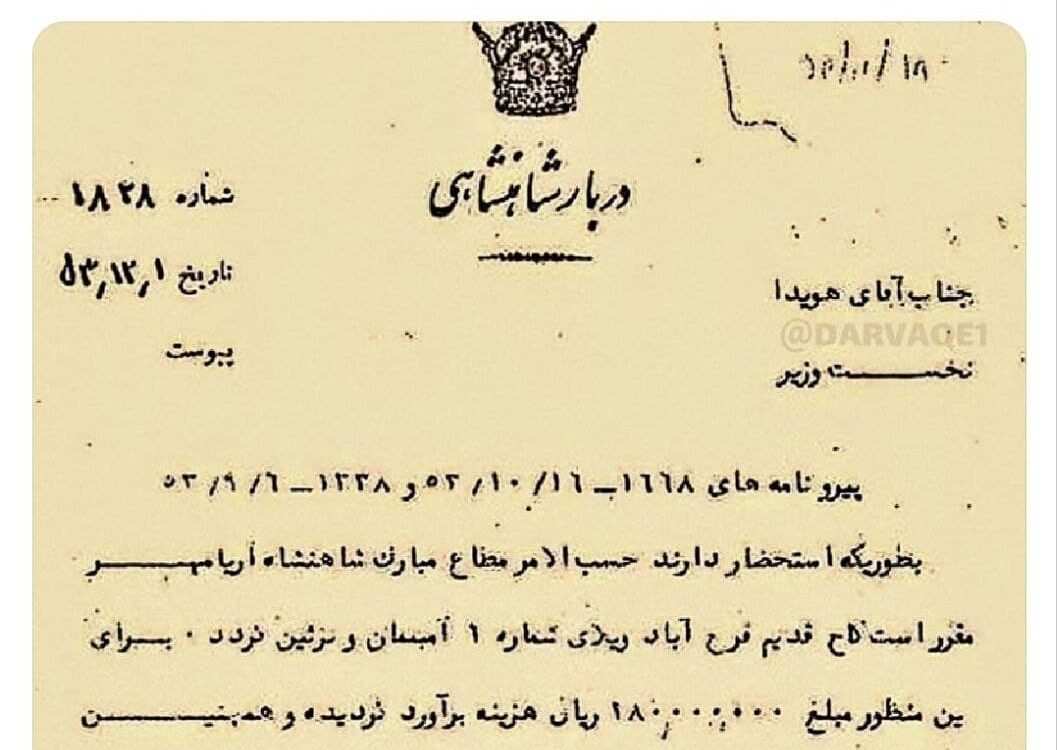 دربار شاهنشاهی
شماره ۱۸۲۸
تاریخ ۵۳٫۱۲٫۱
پیوست
جناب آقای هویدا
@DARVAQE1
نخست وزیر
پیرو نامه های ۱۶۶۸ــ ۵۳/۱۰/۱۶ و ۱۳۳۸ــ ۵۳/۹/۶
بطوریکه استحضار دارند حسب الامر مطاع مبارک شاهنشاه آریامهر
مقرر است کاخ قدیم فرح آباد ویلای شماره ۱ و تزئین گردد . برای
ین منظور مبلغ ۱۸۰,۰۰۰,۰۰۰ ریال هزینه برآورد گردیده و همچنین